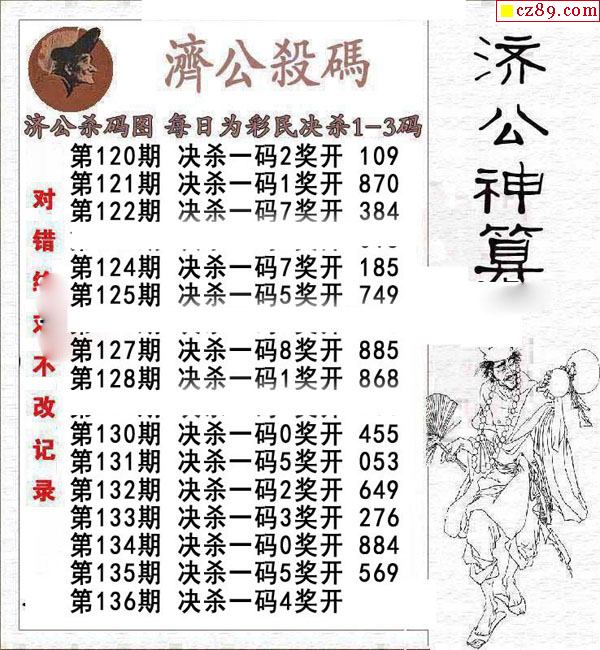 cz89.com
濟公殺碼
济公杀码图 每日为彩民决杀1-3码
第120期 决杀一码2奖开 109
第121期 决杀一码1奖开 870
第122期 决杀一码7奖开 384
第124期 决杀一码7奖开 185
第125期 决杀一码5奖开 749
第127期 决杀一码8奖开 885
第128期 决杀一码1奖开 868
第130期 决杀一码0奖开 455
第131期 决杀一码5奖开 053
第132期 决杀一码2奖开 649
第133期 决杀一码3奖开 276
第134期 决杀一码0奖开 884
第135期 决杀一码5奖开 569
第136期 决杀一码4奖开
对错 不改记录
济公神算